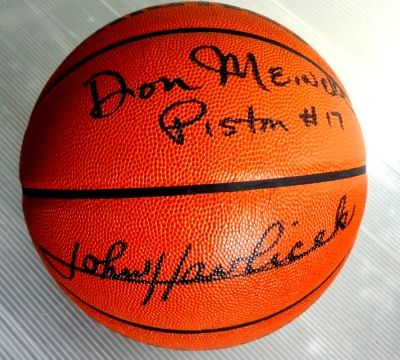 Don Meineke
Piston #17
John Havlicek